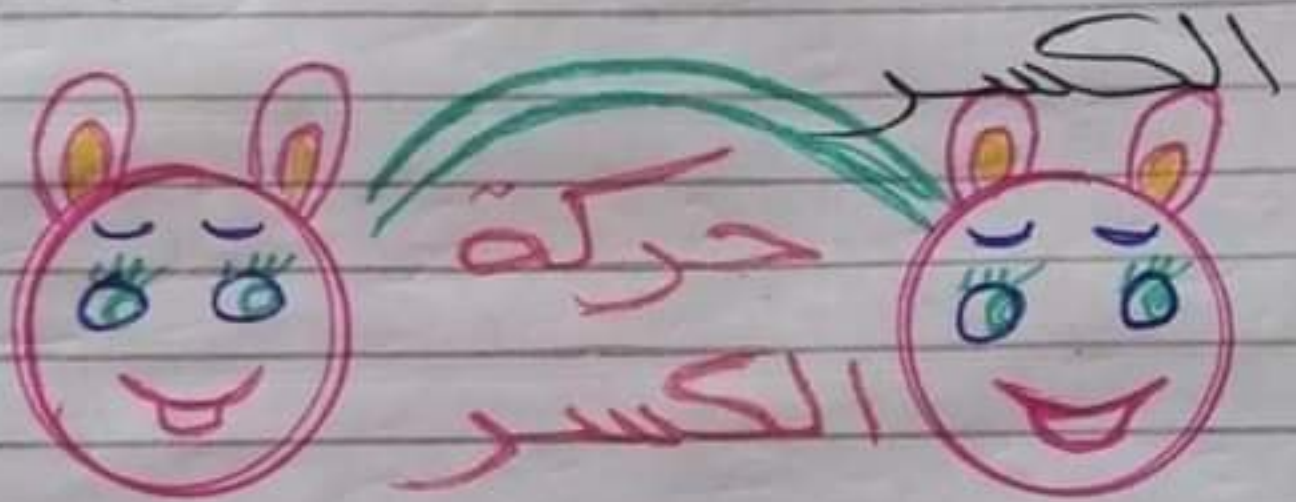 الكسر
حركة
الكسر